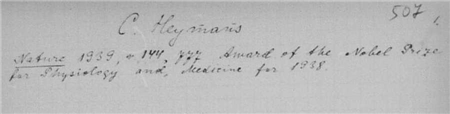 507,
C. Heymans
Nature 1939, v. 144, 777 Award of the Nobel Prize
for Physiology and, Medicine for 1938.